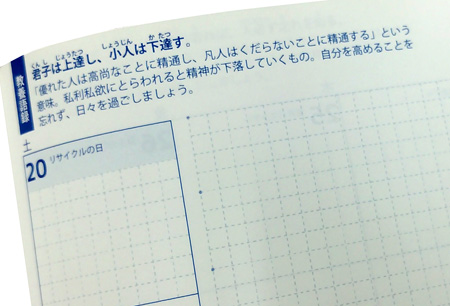 くんし じょうたつ しょうじん か たつ
君子は上達し、小人は下達す。
教養語録
「優れた人は高尚なことに精通し、凡人はくだらないことに精通する」という
意味。私利私欲にとらわれると精神が下落していくもの。自分を高めることを
忘れず、日々を過ごしましょう。
土
20 リサイクルの日